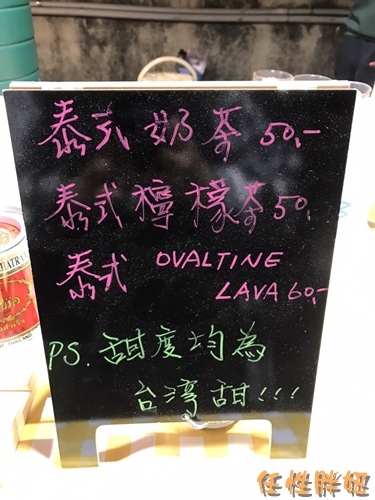 泰式奶茶50.-
泰式檸檬茶50.
泰式 OVALTINE
LAVA 60.-
PS. 甜度均為
台灣甜!!!
任性胖妞